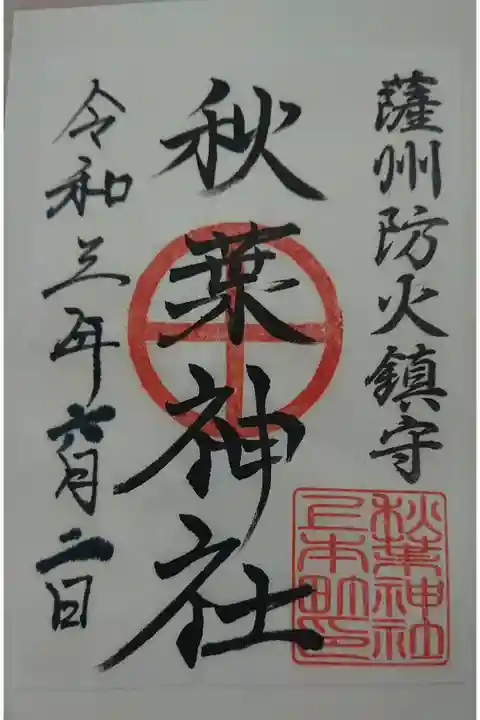 薩州防火鎮守
秋葉神社
令和三年六月二日
秋葉神社
上本町印